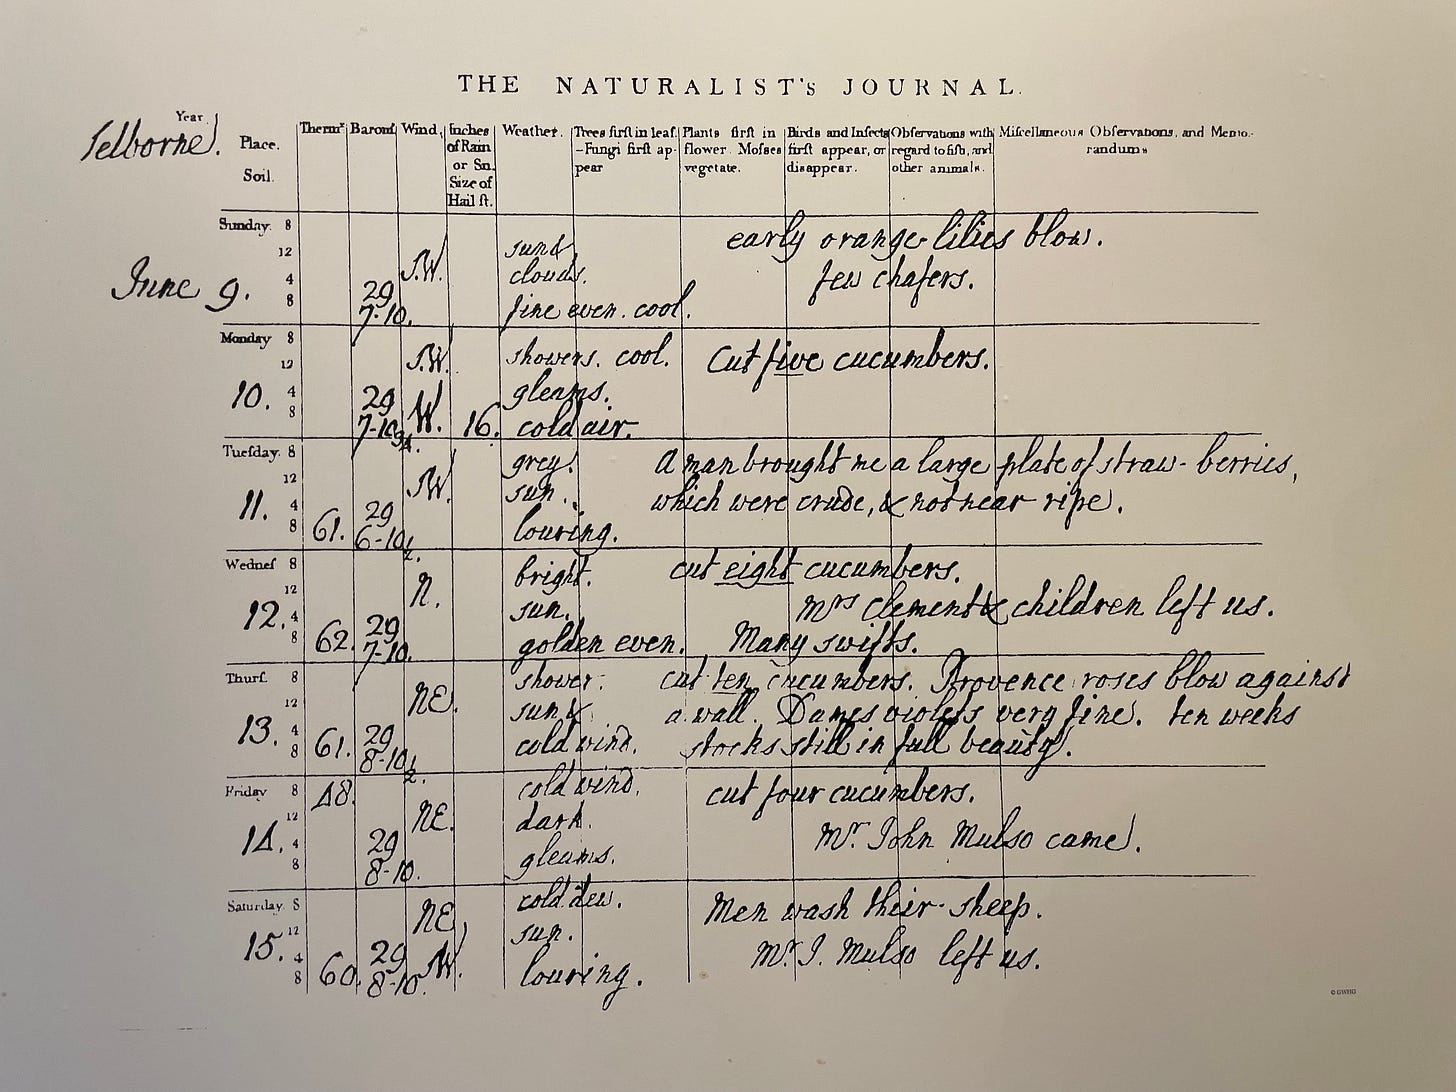 THE NATURALIST's JOURNAL.
Year
Selborne. Place. Soil.
Thermr Baromr Wind. Inches of Rain or Sn. Size of Hail st. Weather. Trees first in leaf. -Fungi first appear Plants first in flower Mosses vegetate. Birds and Insects first appear, or disappear. Observations with regard to fish, and other animals. Miscellaneous Observations, and Memorandums
Sunday. 8 early orange-lilies blow.
12 S.W. sun &
4 clouds. few chafers.
June 9. 8 29 7-10. fine even. cool.
Monday 8 showers. cool. Cut five cucumbers.
12 S.W.
10. 4 29 gleams.
8 7-10 3/4. W. 16. cold air.
Tuesday. 8 grey. A man brought me a large plate of straw-berries,
12 S.W. sun. which were crude, & not near ripe.
11. 4 29
8 61. 6-10 1/2. louring.
Wednes 8 bright. cut eight cucumbers.
12 N. sun. Mrs Clement & children left us.
12. 4 29
8 62. 7-10. golden even. Many swifts.
Thurs. 8 shower. cut ten cucumbers. Provence roses blow against
12 NE. sun & a wall. Dames violets very fine. ten weeks
13. 4 29
8 61. 8-10 1/2. cold wind. stocks still in full beauty.
Friday 8 48. cold wind. cut four cucumbers.
12 NE. dark.
14. 4 29 Mr. John Mulso came.
8 8-10. gleams.
Saturday. 8 NE cold dew. Men wash their sheep.
12 sun.
15. 4 29 Mr. J. Mulso left us.
8 60. 8-10. louring.
© GWHG